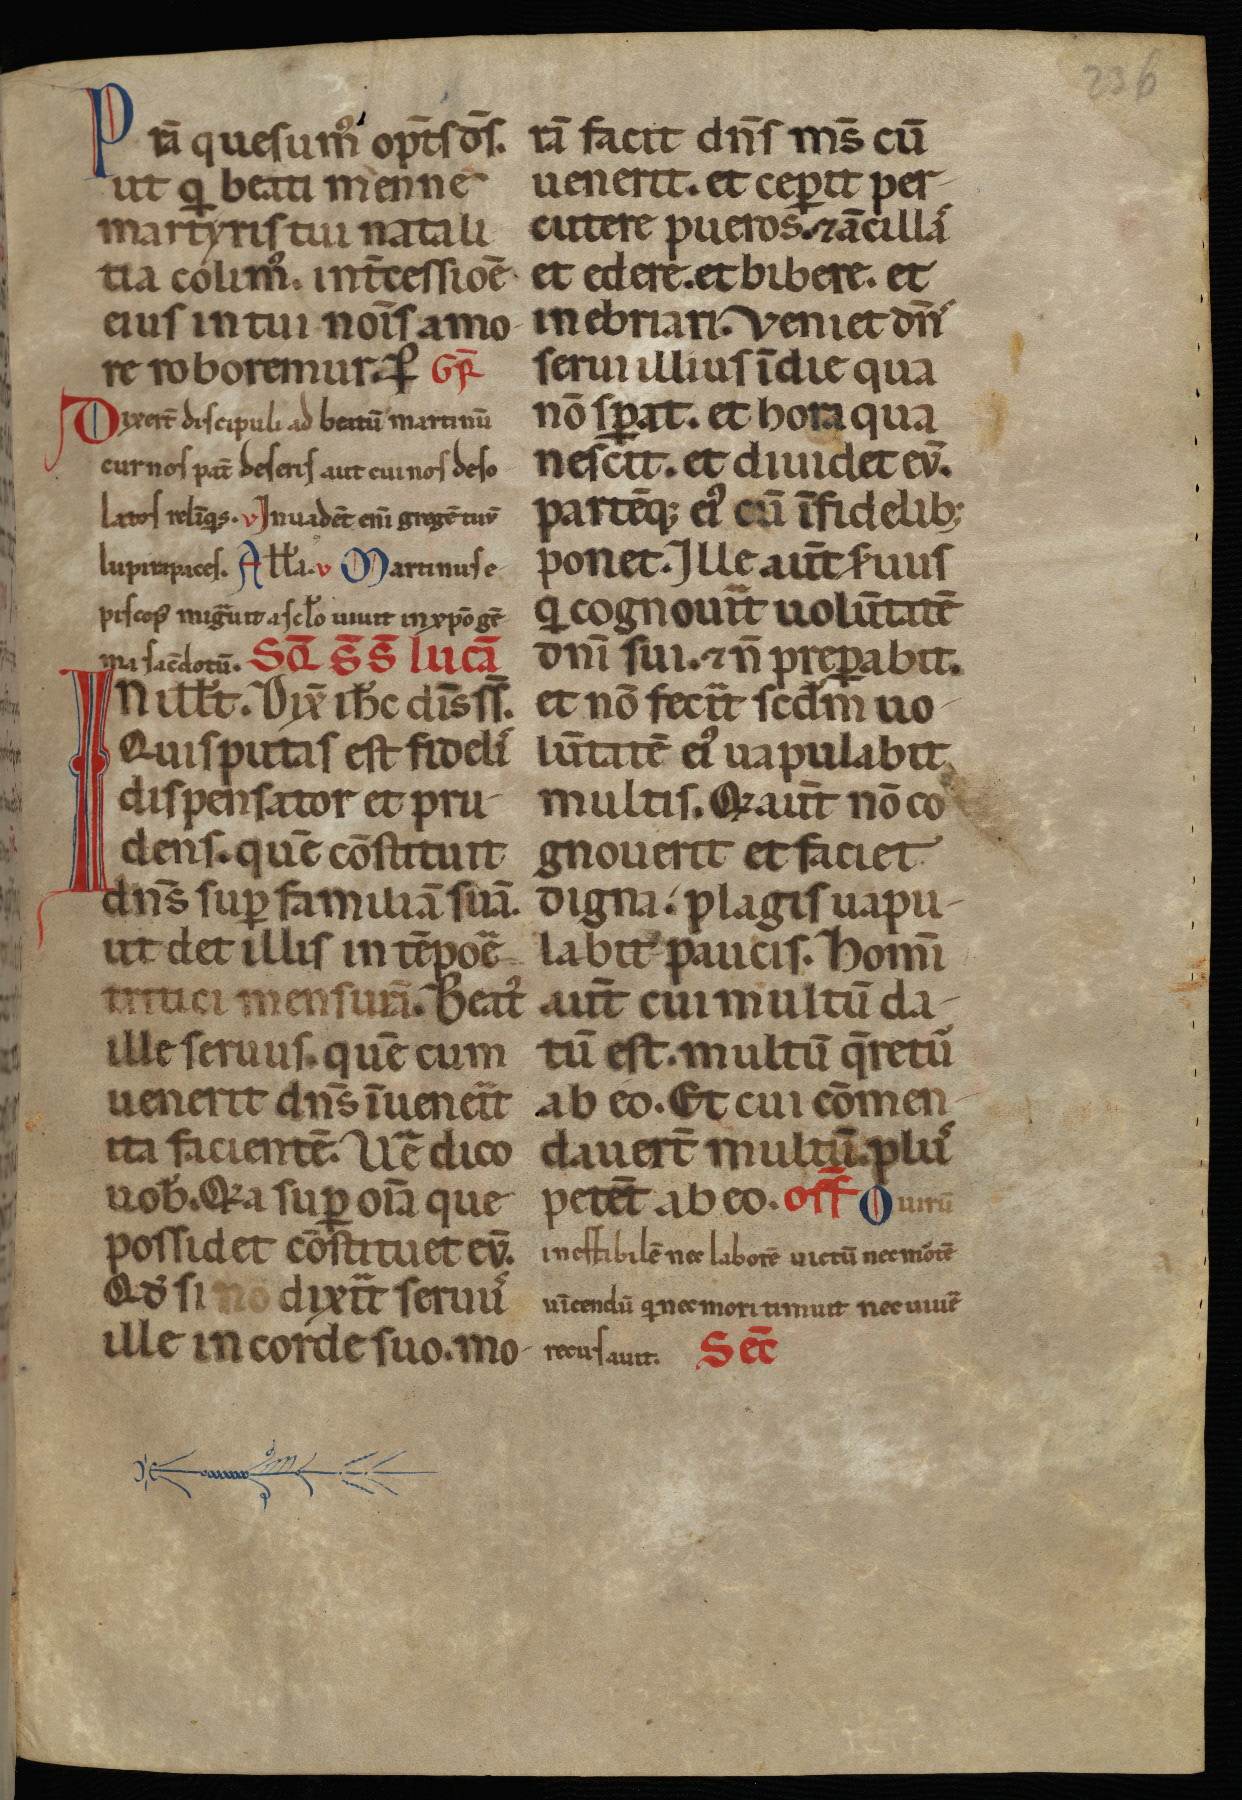 236
P ra̅ quesum᷒ op̅ts d̅s.
ut q̲ beati menne
martyris tui natali
tia colim᷒. int̅cessioe̅
eius in tui no̅is amo
re roboremur. P̲ G̅R
Dixer̅t discipuli ad beatu̅ martinu̅
cur nos pat̅ deseris aut cui nos deso
latos reli̅q̅s. v Inuade̅t eni̅ grege̅ tuu̅
lupi rapaces. All̅a. v Martinus e
piscop᷒ mig̅uit a sc̅lo uiuit in xp̅o ge̅
ma sac̅dotu̅. Sc̅d S̅ S̅ luca̅
IN ill̅ t̅. Dix̅ ih̅c di̅s s̅s.
Quis putas est fideli᷒
dispensator et pru
dens. que̅ co̅stituit
dn̅s sup̲ familia̅ sua̅.
ut det illis in te̅poe̅
tritici mensura̅. Beat᷒
ille seruus. que̅ cum
uenerit dn̅s i̅uene̅it
ita faciente̅. Ue̅ dico
uob̅. Qa sup̲ oi̅a que
possidet co̅stituet eu̅.
Qd̅ si no̅ dix̅it seruu᷒
ille in corde suo. mo
ra̅ facit dn̅s m̅s cu̅
uenerit. et cep̲it per
cutere pueros. ⁊ a̅cilla᷒
et edere. et bibere. et
inebriari. Veniet dn̅᷒
serui illius i̅ die qua
no̅ sp̲at. et hora qua
nescit. et diuidet eu̅.
parte̅q; ei᷒ cu̅ i̅fidelib;
ponet. Ille aut̅ s̅uus
q̲ cognou̅it uolu̅tate̅
dn̅i sui. ⁊ n̅ prep̲abit.
et no̅ fec̅it scd̅m uo
lu̅tate̅ ei᷒ uapulabit
multis. Q aut̅ no̅ co
gnouerit et faciet
digna: plagis uapu
labit paucis. Homi̅
aut̅ cui multu̅ da
tu̅ est. multu̅ q̅retu᷒
ab eo. Et cui co̅men
dauer̅t multu̅. plu᷒
pete̅t ab eo. off̅ O uiru̅
ineff̅abile̅ nec labore̅ uictu̅ nec mo̅te̅
ui̅cendu̅ q̲ nec mori timuit nec uiue̅
recusauit. Sec̅